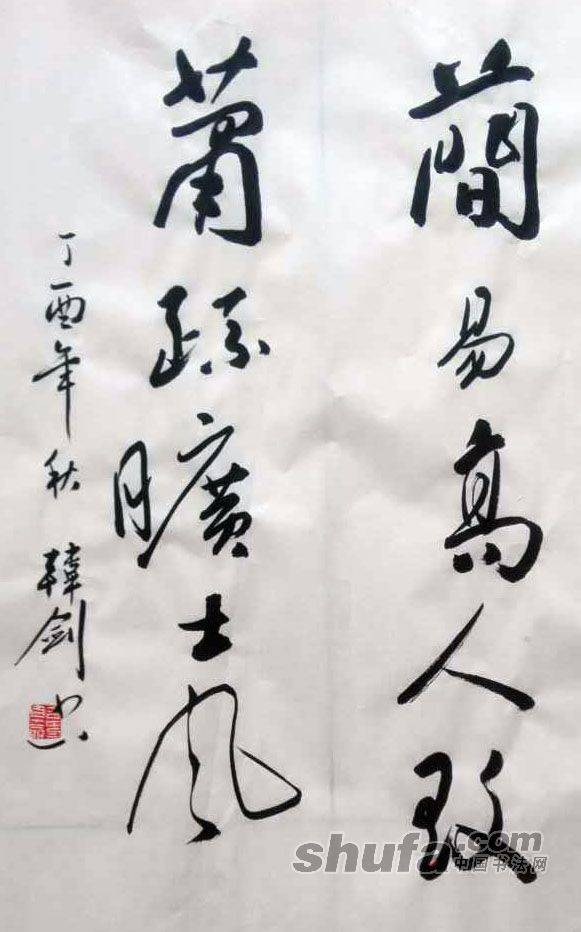 簡易高人致
蕭疏曠士风
丁酉年秋 韓劍书
shufa.com
中国书法网